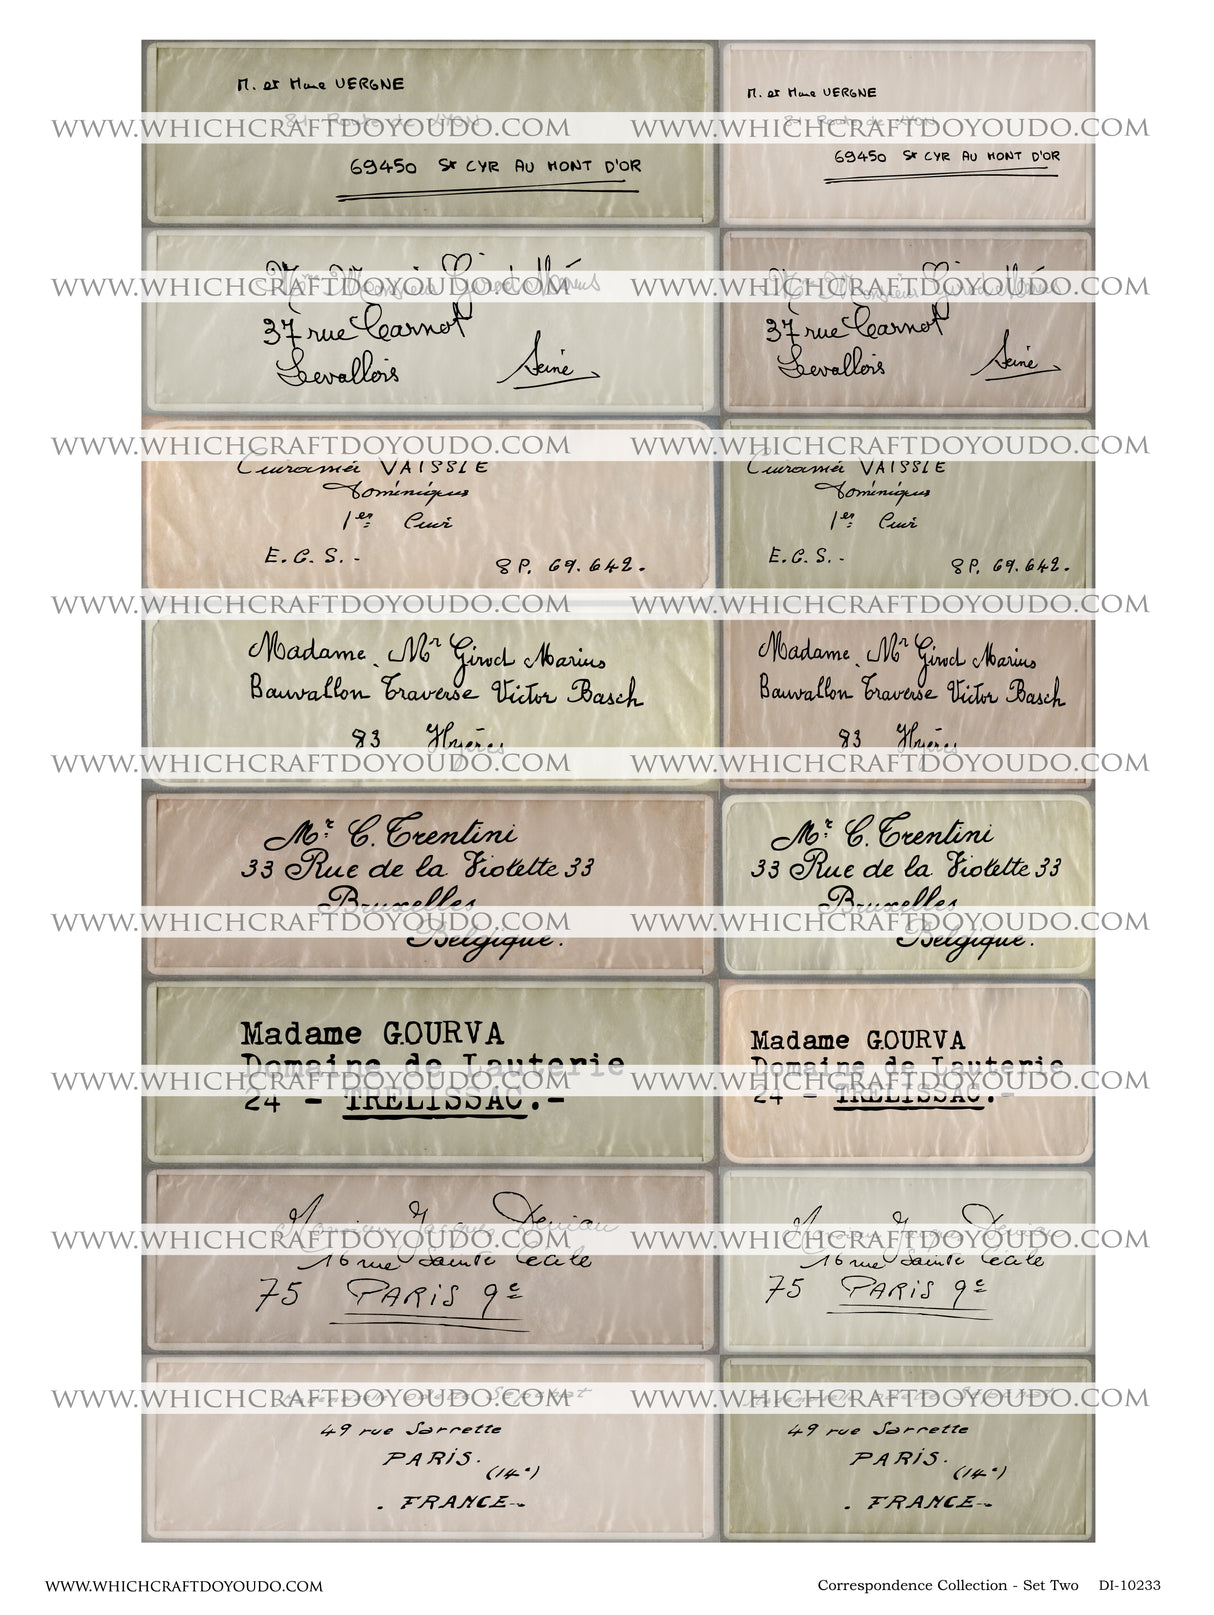 M. et Mme VERGNE
M. et Mme VERGNE
81 Route de LYON
81 Route de LYON
WWW.WHICHCRAFTDOYOUDO.COM
WWW.WHICHCRAFTDOYOUDO.COM
69450 St CYR AU MONT D'OR
69450 St CYR AU MONT D'OR
Monsieur Girod Marius
Monsieur Girod Marius
WWW.WHICHCRAFTDOYOUDO.COM
WWW.WHICHCRAFTDOYOUDO.COM
37 rue Carnot
37 rue Carnot
Levallois Seine
Levallois Seine
WWW.WHICHCRAFTDOYOUDO.COM
WWW.WHICHCRAFTDOYOUDO.COM
VAISSIE
VAISSIE
Dominique
Dominique
1er
1er
E.C.S.-
SP. 69.642.
E.C.S.-
SP. 69.642.
WWW.WHICHCRAFTDOYOUDO.COM
WWW.WHICHCRAFTDOYOUDO.COM
Madame. Mr Girod Marius
Madame. Mr Girod Marius
Bauvallon Traverse Victor Basch
Bauvallon Traverse Victor Basch
83 Hyères
83 Hyères
WWW.WHICHCRAFTDOYOUDO.COM
WWW.WHICHCRAFTDOYOUDO.COM
Mr. C. Trentini
Mr. C. Trentini
33 Rue de la Violette 33
33 Rue de la Violette 33
Bruxelles
Bruxelles
WWW.WHICHCRAFTDOYOUDO.COM
WWW.WHICHCRAFTDOYOUDO.COM
Belgique.
Belgique.
Madame GOURVA
Madame GOURVA
Domaine de Lauterie
Domaine de Lauterie
WWW.WHICHCRAFTDOYOUDO.COM
WWW.WHICHCRAFTDOYOUDO.COM
24 - TRELISSAC.-
24 - TRELISSAC.-
Monsieur Jacques
Monsieur Jacques
WWW.WHICHCRAFTDOYOUDO.COM
WWW.WHICHCRAFTDOYOUDO.COM
16 rue Sainte Cécile
16 rue Sainte Cécile
75 PARIS 9e
75 PARIS 9e
Mademoiselle Odette
Mademoiselle Odette
WWW.WHICHCRAFTDOYOUDO.COM
WWW.WHICHCRAFTDOYOUDO.COM
49 rue Sarrette
49 rue Sarrette
PARIS.
(14e)
PARIS.
(14e)
. FRANCE-.
. FRANCE-.
WWW.WHICHCRAFTDOYOUDO.COM
Correspondence Collection - Set Two DI-10233